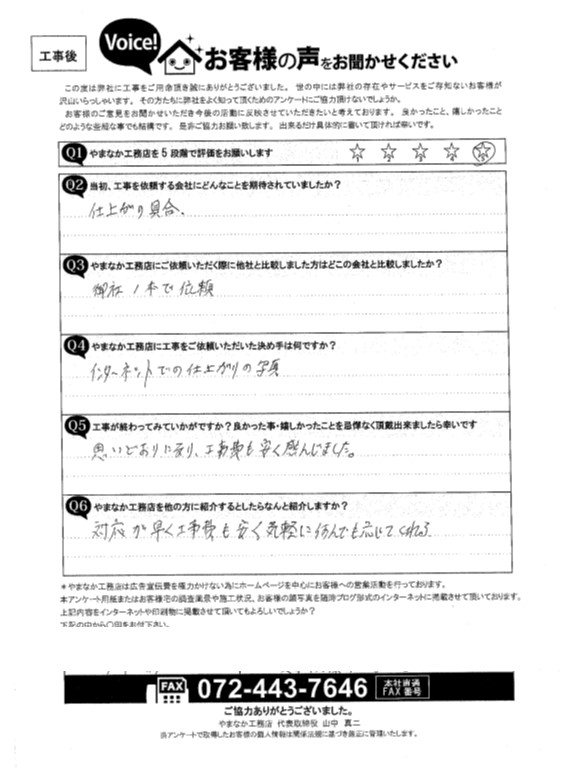 工事後
Voice!
お客様の声をお聞かせください
この度は弊社に工事をご用命頂き誠にありがとうございました。 世の中には弊社の存在やサービスをご存知ないお客様が
沢山いらっしゃいます。 その方たちに弊社をよく知って頂くためのアンケートにご協力頂けないでしょうか。
お客様のご意見をお聞かせいただき今後の活動に反映させていただきたいと考えております。 良かったこと、嬉しかったこと
どのような些細な事でも結構です。 是非ご協力お願い致します。 出来るだけ具体的に書いて頂ければ幸いです。
Q1 やまなか工務店を 5 段階で評価をお願いします
1 2 3 4 5
Q2 当初、工事を依頼する会社にどんなことを期待されていましたか？
仕上がり具合、
Q3 やまなか工務店にご依頼いただく際に他社と比較しました方はどこの会社と比較しましたか？
御社 1本で依頼
Q4 やまなか工務店に工事をご依頼いただいた決め手は何ですか？
インターネットでの仕上がりの写真
Q5 工事が終わってみていかがですか？良かった事・嬉しかったことを忌憚なく頂戴出来ましたら幸いです
思いどおりになり、工事費も安く感じました。
Q6 やまなか工務店を他の方に紹介するとしたらなんと紹介しますか？
対応が早く工事費も安く気軽に何んでも応じてくれる
＊やまなか工務店は広告宣伝費を極力かけない為にホームページを中心にお客様への営業活動を行っております。
本アンケート用紙またはお客様宅の調査風景や施工状況、お客様の顔写真を随時ブログ形式のインターネットに掲載させて頂いております。
上記内容をインターネットや印刷物に掲載させて頂いてもよろしいでしょうか？
下記の中から〇印をお付下さい。
FAX 072-443-7646 本社直通 FAX 番号
ご協力ありがとうございました。
やまなか工務店 代表取締役 山中 真二
当アンケートで取得したお客様の個人情報は関係法規に基づき厳正に管理いたします。